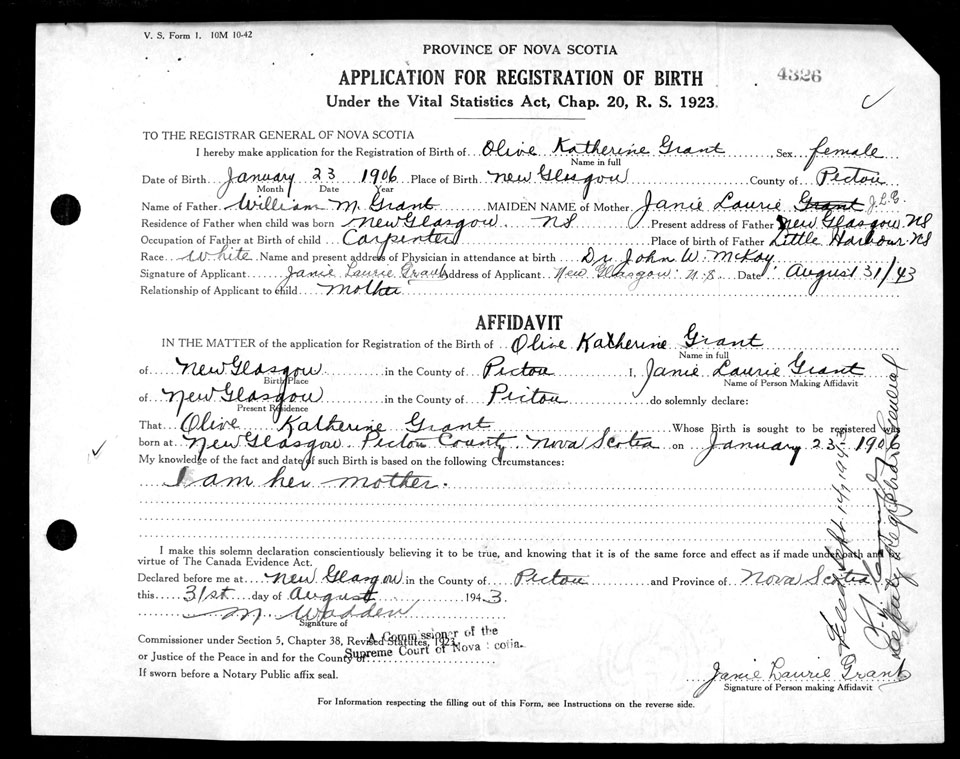 V. S. Form 1. 10M 10-42
PROVINCE OF NOVA SCOTIA
APPLICATION FOR REGISTRATION OF BIRTH
4326
Under the Vital Statistics Act, Chap. 20, R. S. 1923.
TO THE REGISTRAR GENERAL OF NOVA SCOTIA
I hereby make application for the Registration of Birth of Olive Katherine Grant, Sex female
Name in full
Date of Birth January 23 1906 Place of Birth New Glasgow County of Pictou
Month Date Year
Name of Father William M. Grant MAIDEN NAME of Mother Janie Laurie Grant J.L.G.
Residence of Father when child was born New Glasgow NS Present address of Father New Glasgow NS
Occupation of Father at Birth of child Carpenter Place of birth of Father Little Harbour NS
Race White Name and present address of Physician in attendance at birth Dr. John W. McKay
Signature of Applicant Janie Laurie Grant Address of Applicant New Glasgow N.S. Date August 31/43
Relationship of Applicant to child mother
AFFIDAVIT
IN THE MATTER of the application for Registration of the Birth of Olive Katherine Grant
Name in full
of New Glasgow in the County of Pictou I, Janie Laurie Grant
Birth Place Name of Person Making Affidavit
of New Glasgow in the County of Pictou do solemnly declare:
Present Residence
That Olive Katherine Grant Whose Birth is sought to be registered was
born at New Glasgow Pictou County Nova Scotia on January 23 1906
My knowledge of the fact and date of such Birth is based on the following Circumstances:
I am her mother.
I make this solemn declaration conscientiously believing it to be true, and knowing that it is of the same force and effect as if made under oath and
virtue of The Canada Evidence Act.
Declared before me at New Glasgow in the County of Pictou and Province of Nova Scotia
this 31st day of August 1943.
M. Wadden
Signature of
Commissioner under Section 5, Chapter 38, Revised Statutes, 1923
A Commissioner of the
or Justice of the Peace in and for the County of
Supreme Court of Nova Scotia.
If sworn before a Notary Public affix seal.
Janie Laurie Grant
Signature of Person making Affidavit
For Information respecting the filling out of this Form, see Instructions on the reverse side.
Filed Sept 14, 1943
Deputy Registrar General